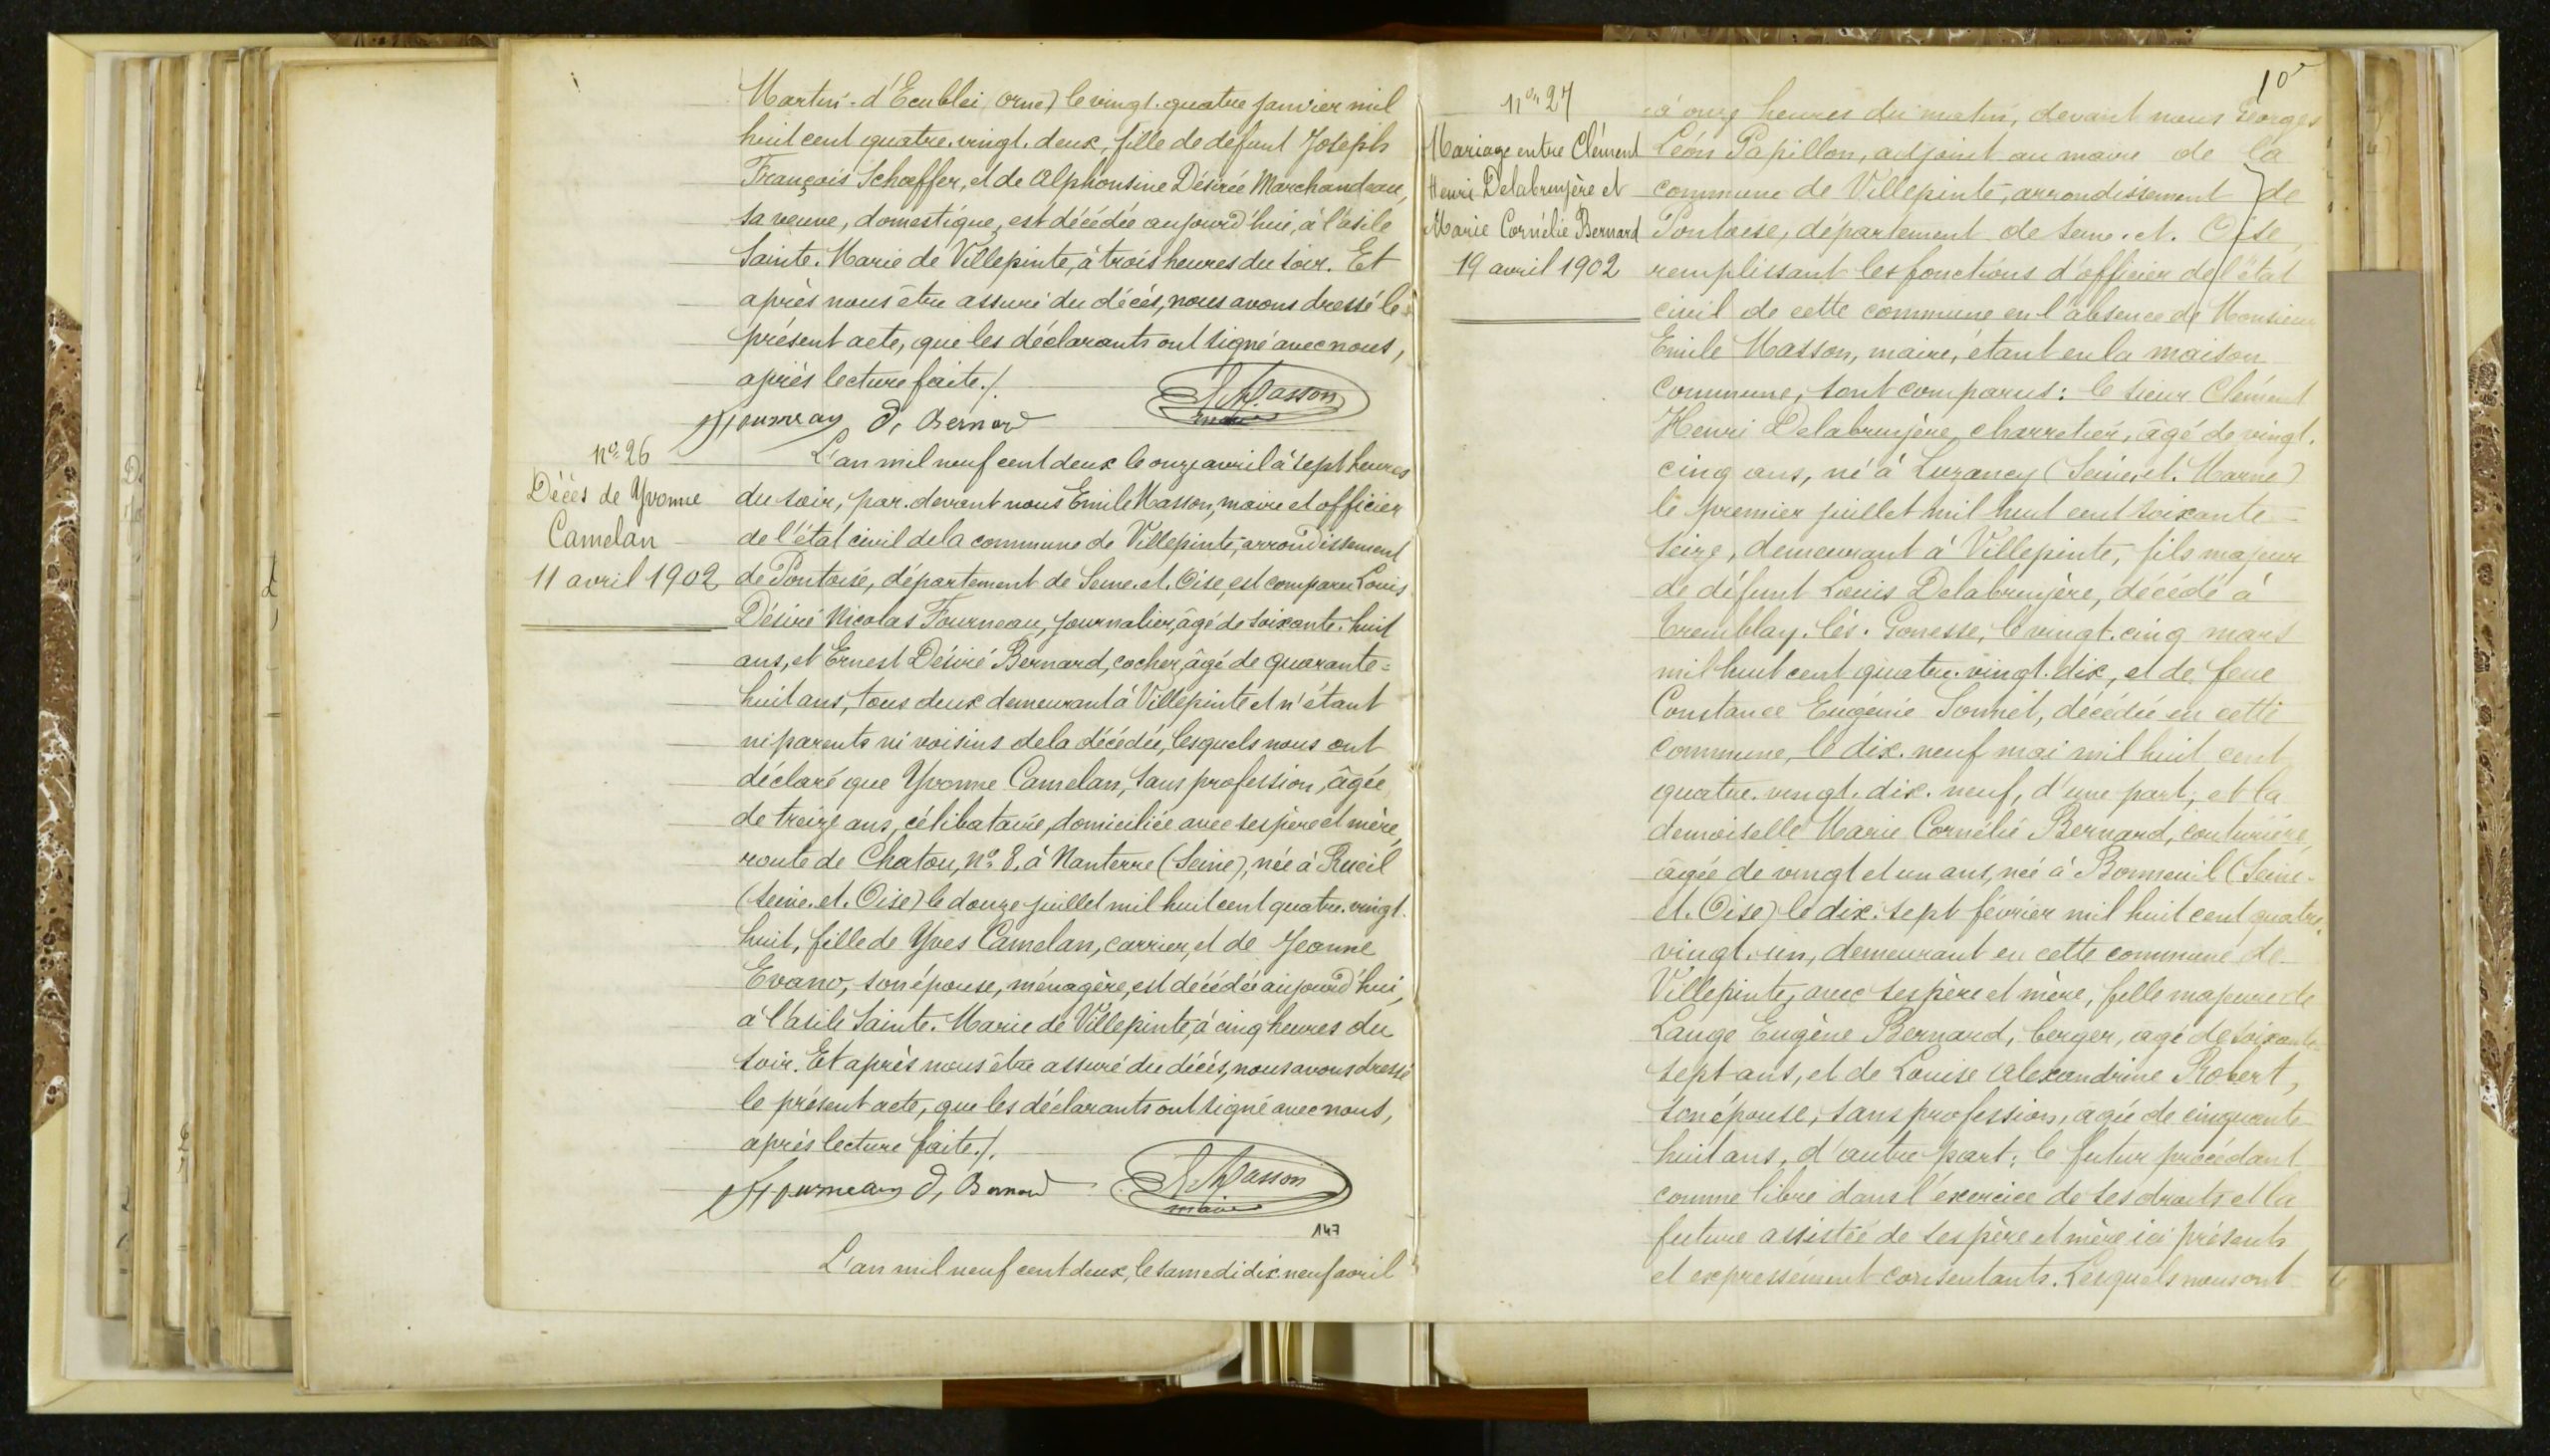 Martin-d'Ecublei (Orne) le vingt-quatre janvier mil
huit cent quatre-vingt-deux, fille de défunt Joseph
François Schaffer, et de Alphonsine Désirée Marchandeau,
sa veuve, domestique, est décédée aujourd'hui, à l'asile
Sainte-Marie de Villepinte, à trois heures du soir. Et
après nous être assuré du décès, nous avons dressé le
présent acte, que les déclarants ont signé avec nous,
après lecture faite./.
Fourneau D, Bernard E. Masson
maire
N° 26
Décès de Yvonne
Camelan
11 avril 1902
L'an mil neuf cent deux le onze avril à sept heures
du soir, par-devant nous Emile Masson, maire et officier
de l'état civil de la commune de Villepinte, arrondissement
de Pontoise, département de Seine-et-Oise, est comparu Louis
Désiré Nicolas Fourneau, journalier, âgé de soixante-huit
ans, et Ernest Désiré Bernard, cocher, âgé de quarante=
huit ans, tous deux demeurant à Villepinte et n'étant
ni parents ni voisins de la décédée, lesquels nous ont
déclaré que Yvonne Camelan, sans profession, âgée
de treize ans, célibataire, domiciliée avec ses père et mère,
route de Chatou, N° 8, à Nanterre (Seine), née à Rueil
(Seine-et-Oise) le douze juillet mil huit cent quatre-vingt-
huit, fille de Yves Camelan, carrier, et de Jeanne
Evano, son épouse, ménagère, est décédée aujourd'hui,
à l'asile Sainte-Marie de Villepinte, à cinq heures du
soir. Et après nous être assuré du décès, nous avons dressé
le présent acte, que les déclarants ont signé avec nous,
après lecture faite./.
Fourneau D, Bernard E. Masson
maire
147
L'an mil neuf cent deux, le samedi dix-neuf avril
10
N° 27
Mariage entre Clément
Henri Delabruyère et
Marie Cornélie Bernard
19 avril 1902
à onze heures du matin, devant nous Georges
Léon Papillon, adjoint au maire de la
commune de Villepinte, arrondissement de
Pontoise, département de Seine-et-Oise,
remplissant les fonctions d'officier de l'état
civil de cette commune en l'absence de Monsieur
Emile Masson, maire, étant en la maison
commune, sont comparus: le sieur Clément
Henri Delabruyère, charretier, âgé de vingt-
cinq ans, né à Luzancy (Seine-et-Marne)
le premier juillet mil huit cent soixante-
seize, demeurant à Villepinte, fils majeur
de défunt Louis Delabruyère, décédé à
Tremblay-lès-Gonesse, le vingt-cinq mars
mil huit cent quatre-vingt-dix, et de feue
Constance Eugénie Sonnet, décédée en cette
commune, le dix-neuf mai mil huit cent
quatre-vingt-dix-neuf, d'une part; et la
demoiselle Marie Cornélie Bernard, couturière,
âgée de vingt et un ans, née à Bonneuil (Seine-
et-Oise) le dix-sept février mil huit cent quatre-
vingt-un, demeurant en cette commune de
Villepinte, avec ses père et mère, fille majeure de
Lange Eugène Bernard, berger, âgé de soixante-
sept ans, et de Louise Alexandrine Robert,
son épouse, sans profession, âgée de cinquante-
huit ans, d'autre part; le futur procédant
comme libre dans l'exercice de ses droits et la
future assistée de ses père et mère ici présents
et expressément consentants. Lesquels nous ont